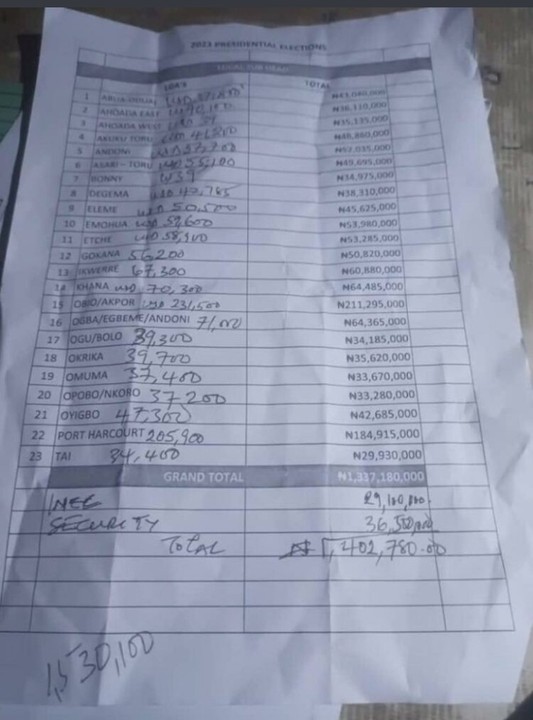 2023 PRESIDENTIAL ELECTIONS
LGA'S TOTAL
1
2 AHOADA EAST ₦36,110,000
3 AHOADA WEST ₦35,135,000
4 AKUKU TORU ₦48,880,000
5 ANDONI
6 ASARI - TORU USD 55,100 ₦49,695,000
7 BONNY ₦34,975,000
8 DEGEMA ₦38,310,000
9 ELEME USD 50,500 ₦45,625,000
10 EMOHUA USD 59,600 ₦53,980,000
11 ETCHE USD 58,900 ₦53,285,000
12 GOKANA 56,200 ₦50,820,000
13 IKWERRE 67,300 ₦60,880,000
14 KHANA USD 70,300 ₦64,485,000
15 OBIO/AKPOR USD 231,500 ₦211,295,000
16 OGBA/EGBEME/ANDONI 71,000 ₦64,365,000
17 OGU/BOLO 39,300 ₦34,185,000
18 OKRIKA 39,700 ₦35,620,000
19 OMUMA 37,400 ₦33,670,000
20 OPOBO/NKORO 37,200 ₦33,280,000
21 OYIGBO 47,300 ₦42,685,000
22 PORT HARCOURT 205,900 ₦184,915,000
23 TAI 34,400 ₦29,930,000
GRAND TOTAL ₦1,337,180,000
INEC 29,100,000
SECURITY 36,500,000
TOTAL ₦1,402,780.00
1,530,100